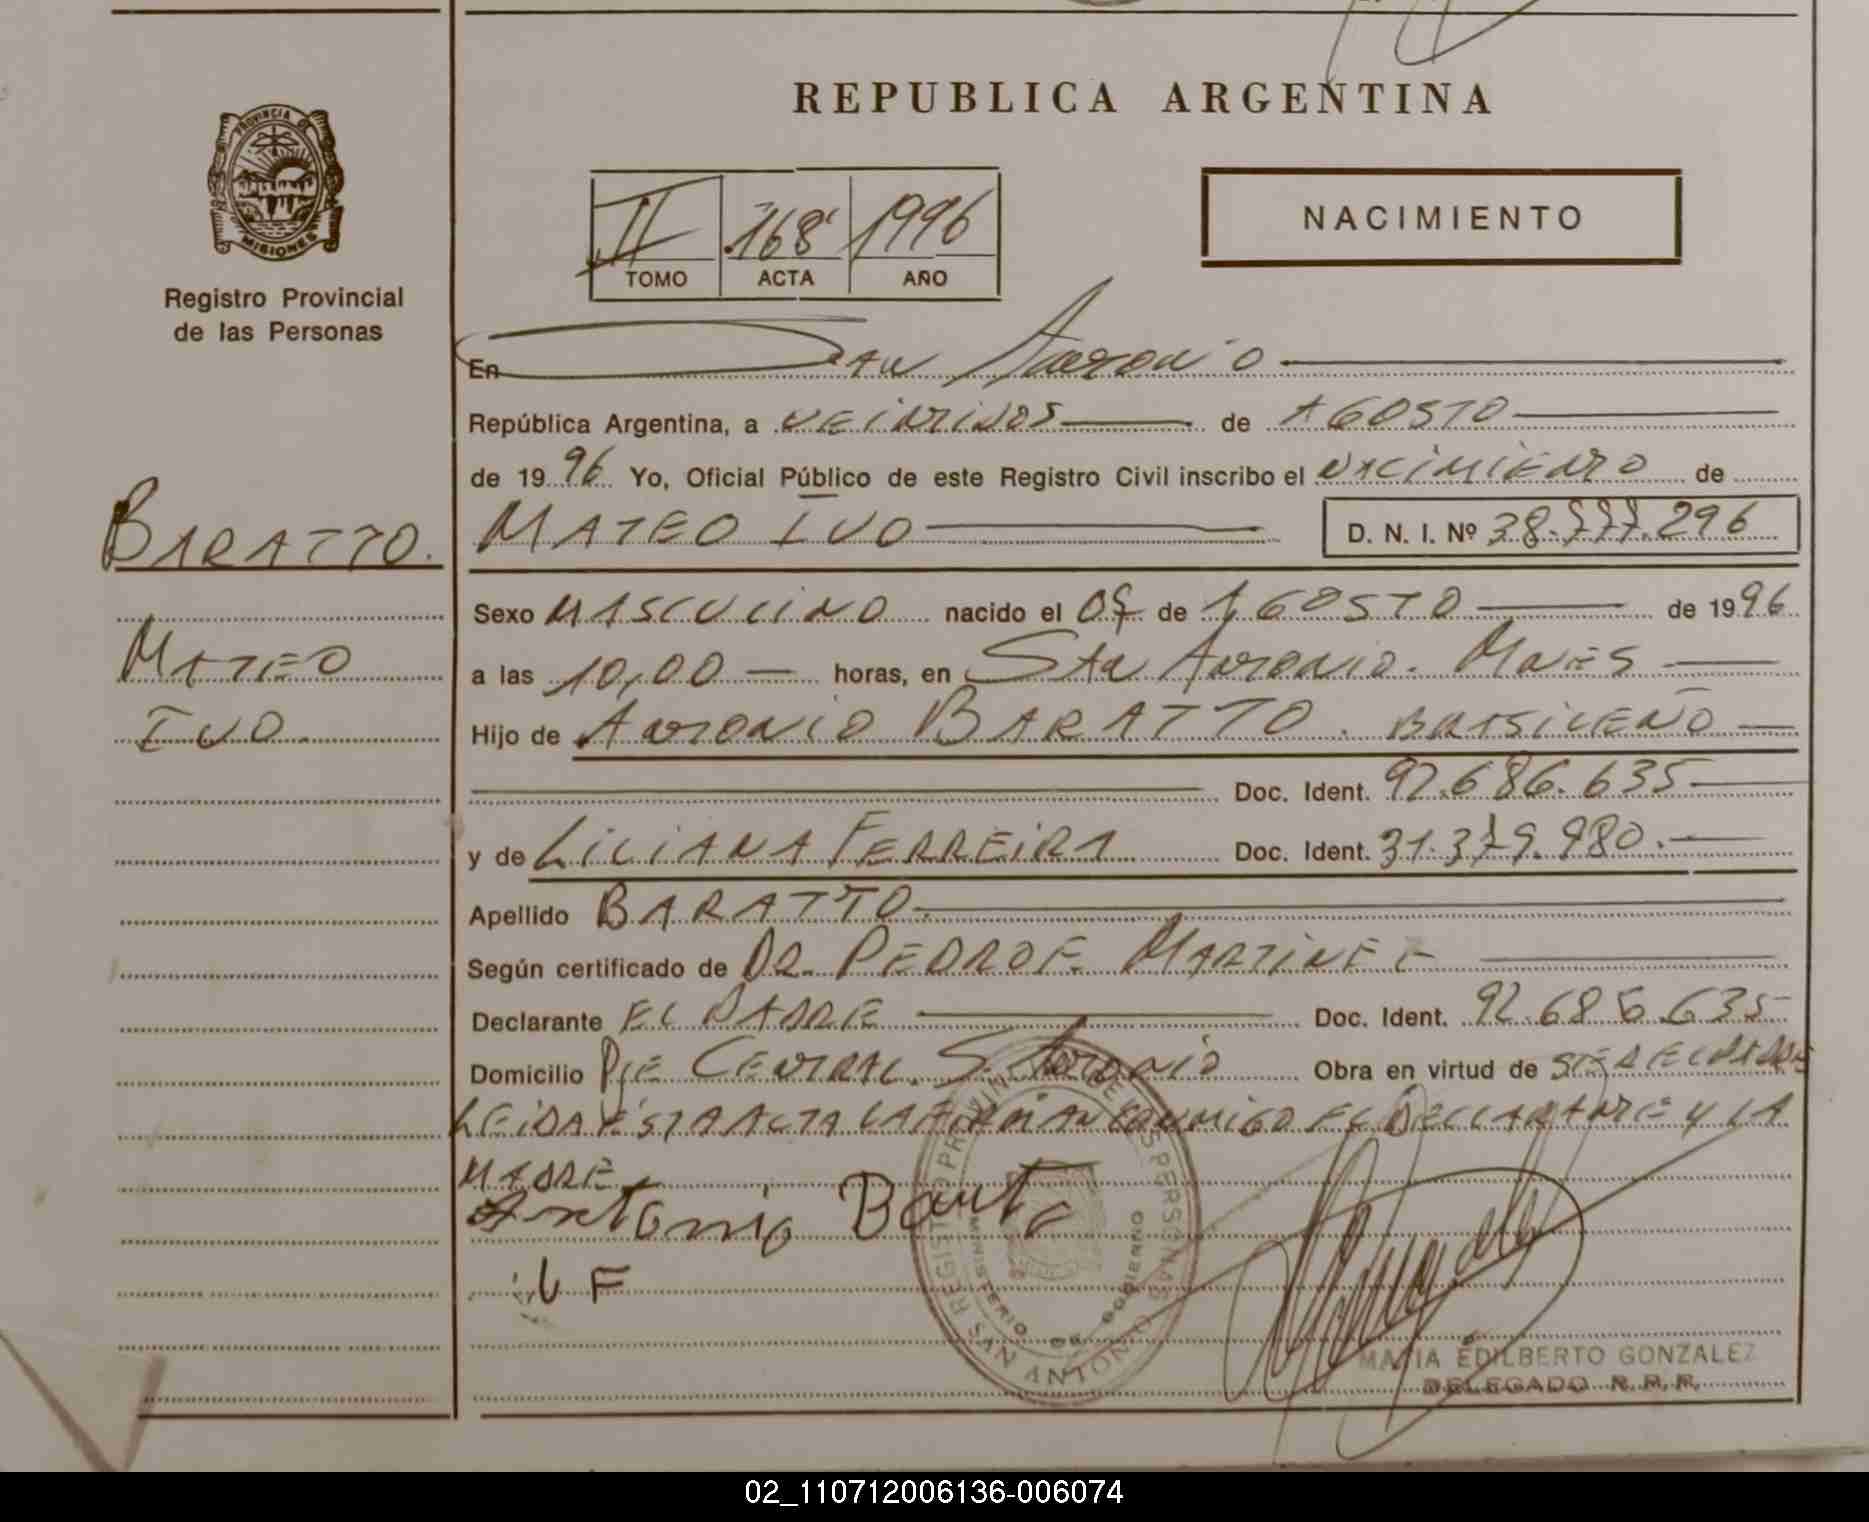 REPUBLICA ARGENTINA
PROVINCIA DE
MISIONES
Registro Provincial
de las Personas
II 168 1996
TOMO ACTA AÑO
NACIMIENTO
En San Antonio
República Argentina, a veintidos de Agosto
de 1996 Yo, Oficial Público de este Registro Civil inscribo el nacimiento de
BARATTO. MATEO IVO D. N. I. Nº 38.777.296
Sexo MASCULINO nacido el de AGOSTO de 1996
MATEO
a las 10,00 horas, en San Antonio. Mnes
IVO.
Hijo de Antonio BARATTO. BRASILEÑO
Doc. Ident. 92.686.635
y de LILIANA FERREIRA Doc. Ident. 31.379.980.
Apellido BARATTO.
Según certificado de DR. PEDRO F. MARTINEZ
Declarante EL PADRE Doc. Ident. 92.686.635
Domicilio Pje CENTRAL. S. Antonio Obra en virtud de
LEIDA ESTA ACTA LA FIRMAN CONMIGO EL DECLARANTE Y LA
MADRE
Antonio
L F
REGISTRO PROVINCIAL DE LAS PERSONAS
MINISTERIO DE GOBIERNO
SAN ANTONIO
MARIA EDILBERTO GONZALEZ
DELEGADO R.P.P.
02_110712006136-006074